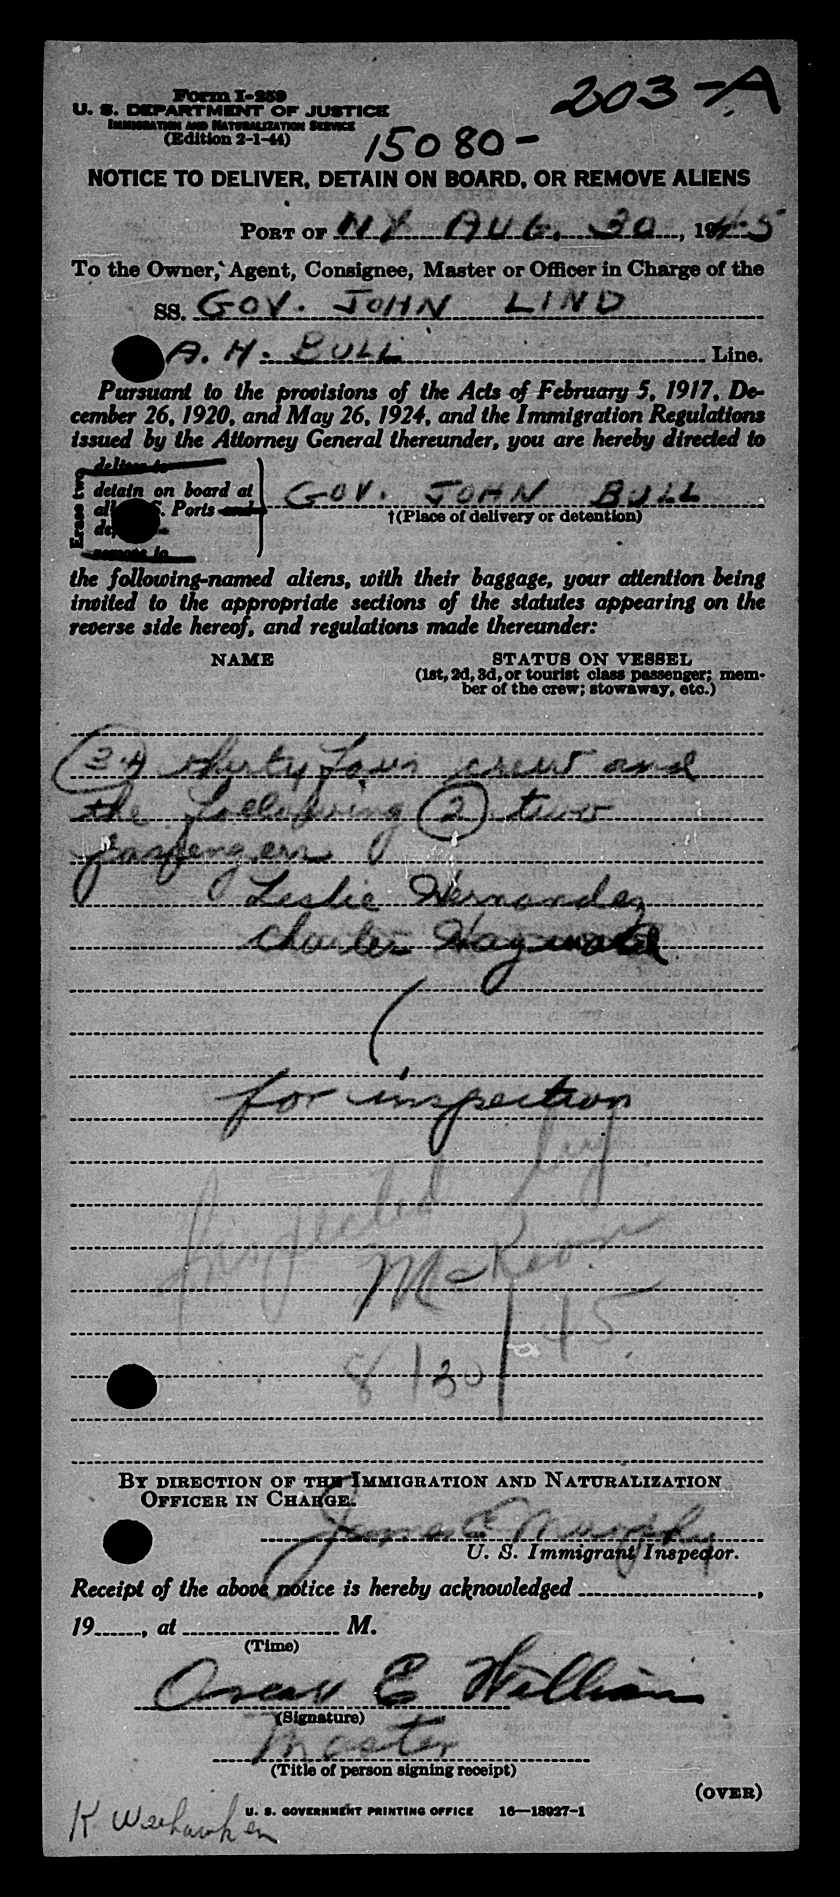 203-A
Form I-259
U. S. DEPARTMENT OF JUSTICE
IMMIGRATION AND NATURALIZATION SERVICE
(Edition 2-1-44)
15080-
NOTICE TO DELIVER, DETAIN ON BOARD, OR REMOVE ALIENS
PORT OF NY AUG. 30, 1945
To the Owner, Agent, Consignee, Master or Officer in Charge of the
SS. GOV. JOHN LIND
A. H. BULL Line.
Pursuant to the provisions of the Acts of February 5, 1917, De-
cember 26, 1920, and May 26, 1924, and the Immigration Regulations
issued by the Attorney General thereunder, you are hereby directed to
Erase two
deliver to
detain on board at
all S. Ports and
remove to
GOV. JOHN BULL
†(Place of delivery or detention)
the following-named aliens, with their baggage, your attention being
invited to the appropriate sections of the statutes appearing on the
reverse side hereof, and regulations made thereunder:
NAME
STATUS ON VESSEL
(1st, 2d, 3d, or tourist class passenger; mem-
ber of the crew; stowaway, etc.)
34 thirty four crew and
the following 2 two
passengers
Leslie Hernandez
Charles Hayward
for inspection
Inspected by
McKeon
8/30/45
BY DIRECTION OF THE IMMIGRATION AND NATURALIZATION
OFFICER IN CHARGE.
James E Murphy
U. S. Immigrant Inspector.
Receipt of the above notice is hereby acknowledged ,
19 , at M.
(Time)
Oscar E William
(Signature)
Master
(Title of person signing receipt)
(OVER)
U. S. GOVERNMENT PRINTING OFFICE 16—18927-1
K Weehawken